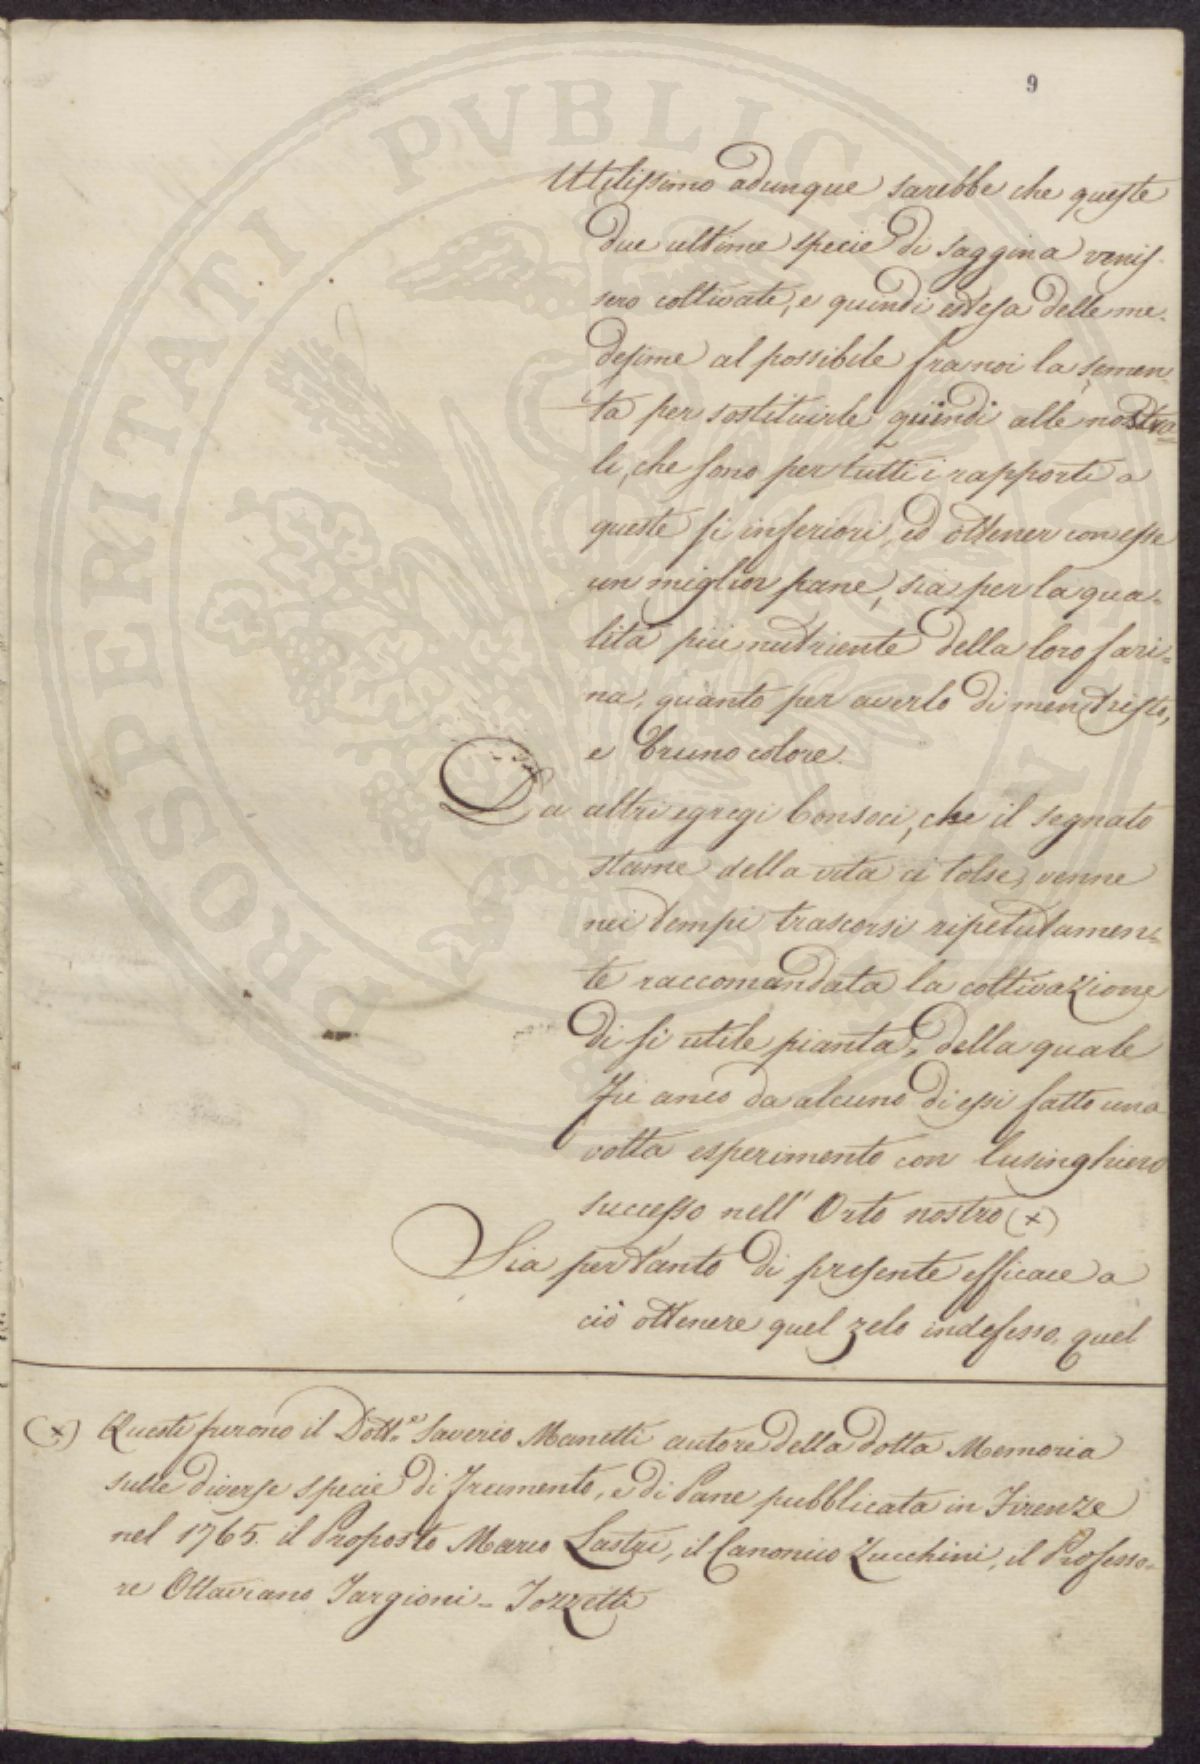 9
Utilissimo adunque sarebbe che queste
due ultime specie di saggina venis-
sero coltivate, e quindi estesa delle me-
desime al possibile fra noi la semen-
ta per sostituirle quindi alle nostra-
li, che sono per tutti i rapporti a
queste si inferiori, ed ottener con esse
un miglior pane, sia per la qua-
lità più nutriente della loro fari-
na, quanto per averlo di men tristo,
e bruno colore.
Da altri egregi Consoci, che il segnato
stame della vita ci tolse, venne
nei tempi trascorsi ripetutamen-
te raccomandata la coltivazione
di sì utile pianta, della quale
fu anco da alcuno di essi fatto una
volta esperimento con lusinghiero
successo nell' Orto nostro (x)
Sia pertanto di presente efficace a
ciò ottenere quel zelo indefesso, quel
(x) Questi furono il Dott.e Saverio Manetti autore della dotta Memoria
sulle diverse specie di Frumento, e di Pane pubblicata in Firenze
nel 1765. il Proposto Marco Lastri, il Canonico Zucchini, il Professo-
re Ottaviano Targioni-Tozzetti
PROSPERITATI PVBLIC